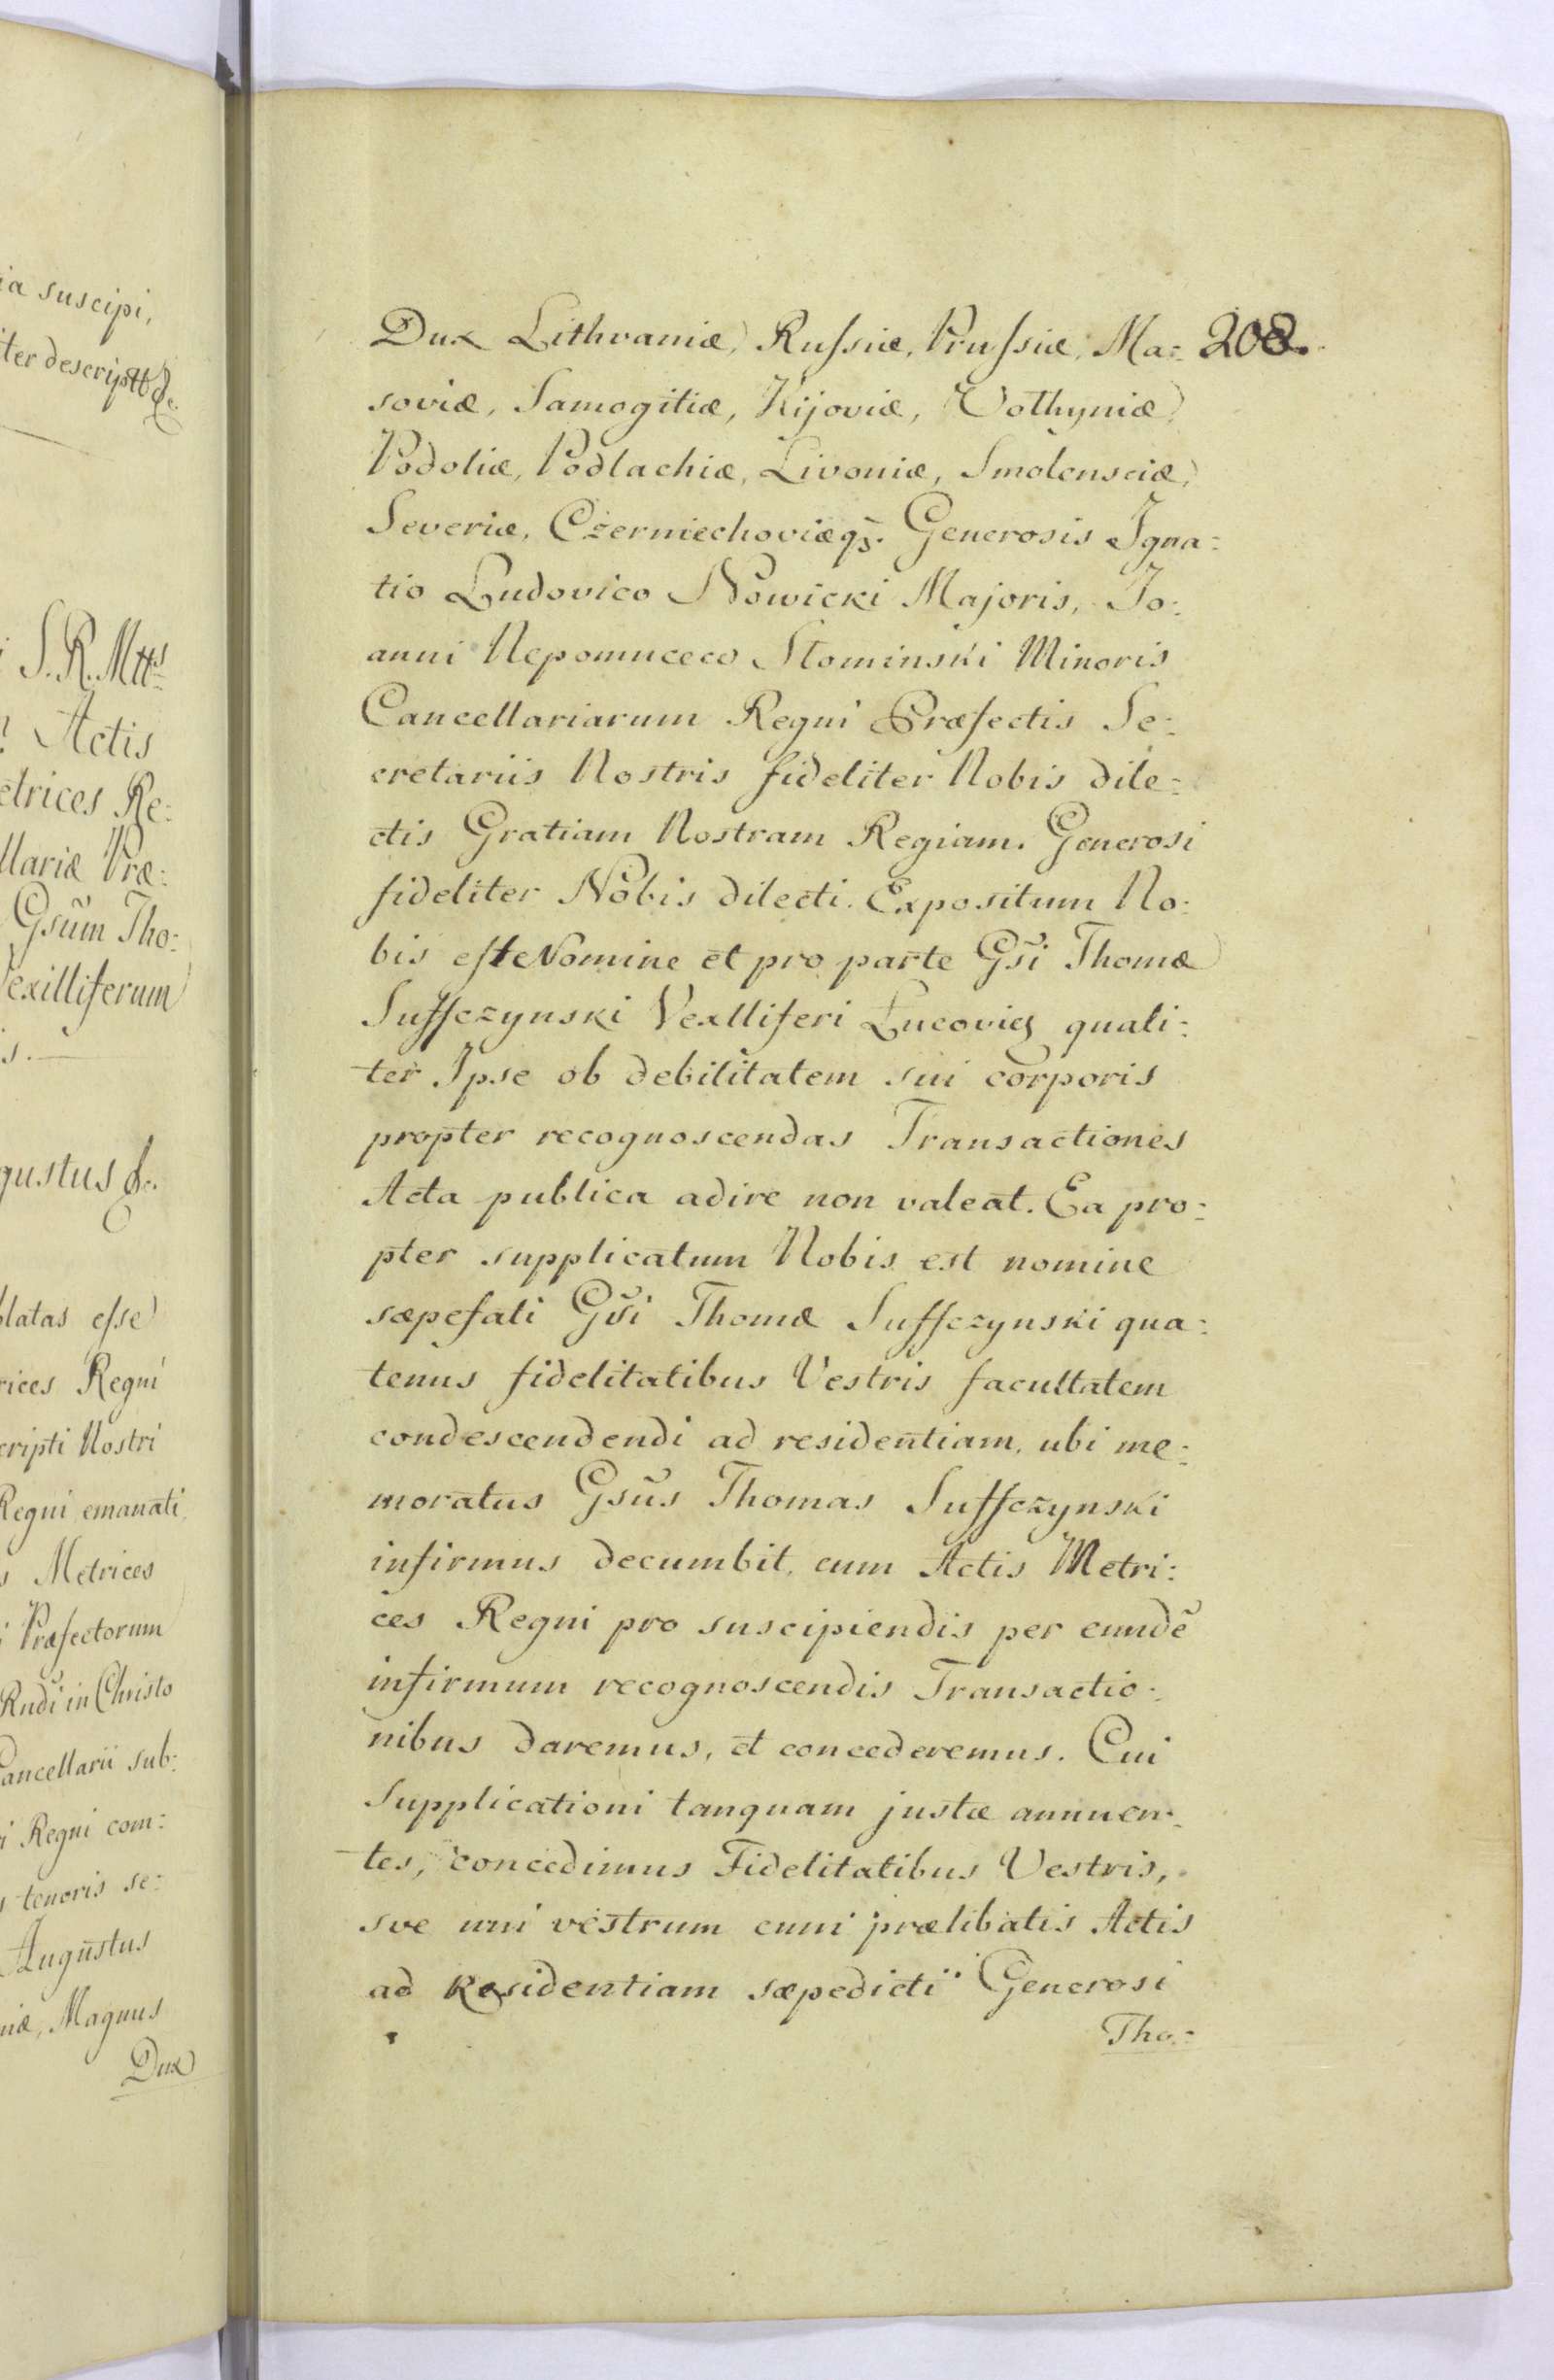 ia suscipi,
iter descriptt &c.
S. R. Mttis
Actis
etrices Re:
llariæ Præ:
Gsum Tho:
Vexilliferum
s.
gustus &c.
blatas esse
rices Regni
cripti Nostri
Regni emanati,
s Metrices
i Præfectorum
Rndi in Christo
Cancellarii sub:
ri Regni com:
s tenoris se:
Augustus
niæ, Magnus
Dux
208.
Dux Lithvaniæ, Russiæ, Prussiæ, Ma:
soviæ, Samogitiæ, Kijoviæ, Volhyniæ,
Podoliæ, Podlachiæ, Livoniæ, Smolensciæ,
Severiæ, Czerniechoviæqȝ. Generosis Igna:
tio Ludovico Nowicki Majoris, Jo:
anni Nepomuceco Słominski Minoris
Cancellariarum Regni Præfectis Se:
cretariis Nostris fideliter Nobis dile:
ctis Gratiam Nostram Regiam. Generosi
fideliter Nobis dilecti. Expositum No:
bis est Nomine et pro parte Gsi Thomæ
Suffczynski Vexlliferi Łucovieȝ quali:
ter Ipse ob debilitatem sui corporis
propter recognoscendas Transactiones
Acta publica adire non valeat. Ea pro:
pter supplicatum Nobis est nomine
sæpefati Gsi Thomæ Suffczynski qua:
tenus fidelitatibus Vestris facultatem
condescendendi ad residentiam, ubi me:
moratus Gsus Thomas Suffczynski
infirmus decumbit, cum Actis Metri:
ces Regni pro suscipiendis per eundē
infirmum recognoscendis Transactio:
nibus daremus, et concederemus. Cui
Supplicationi tanquam justæ annuen:
tes, concedimus Fidelitatibus Vestris,
sve uni vestrum cum prælibatis Actis
ad Residentiam sæpedicti Generosi
Tho: